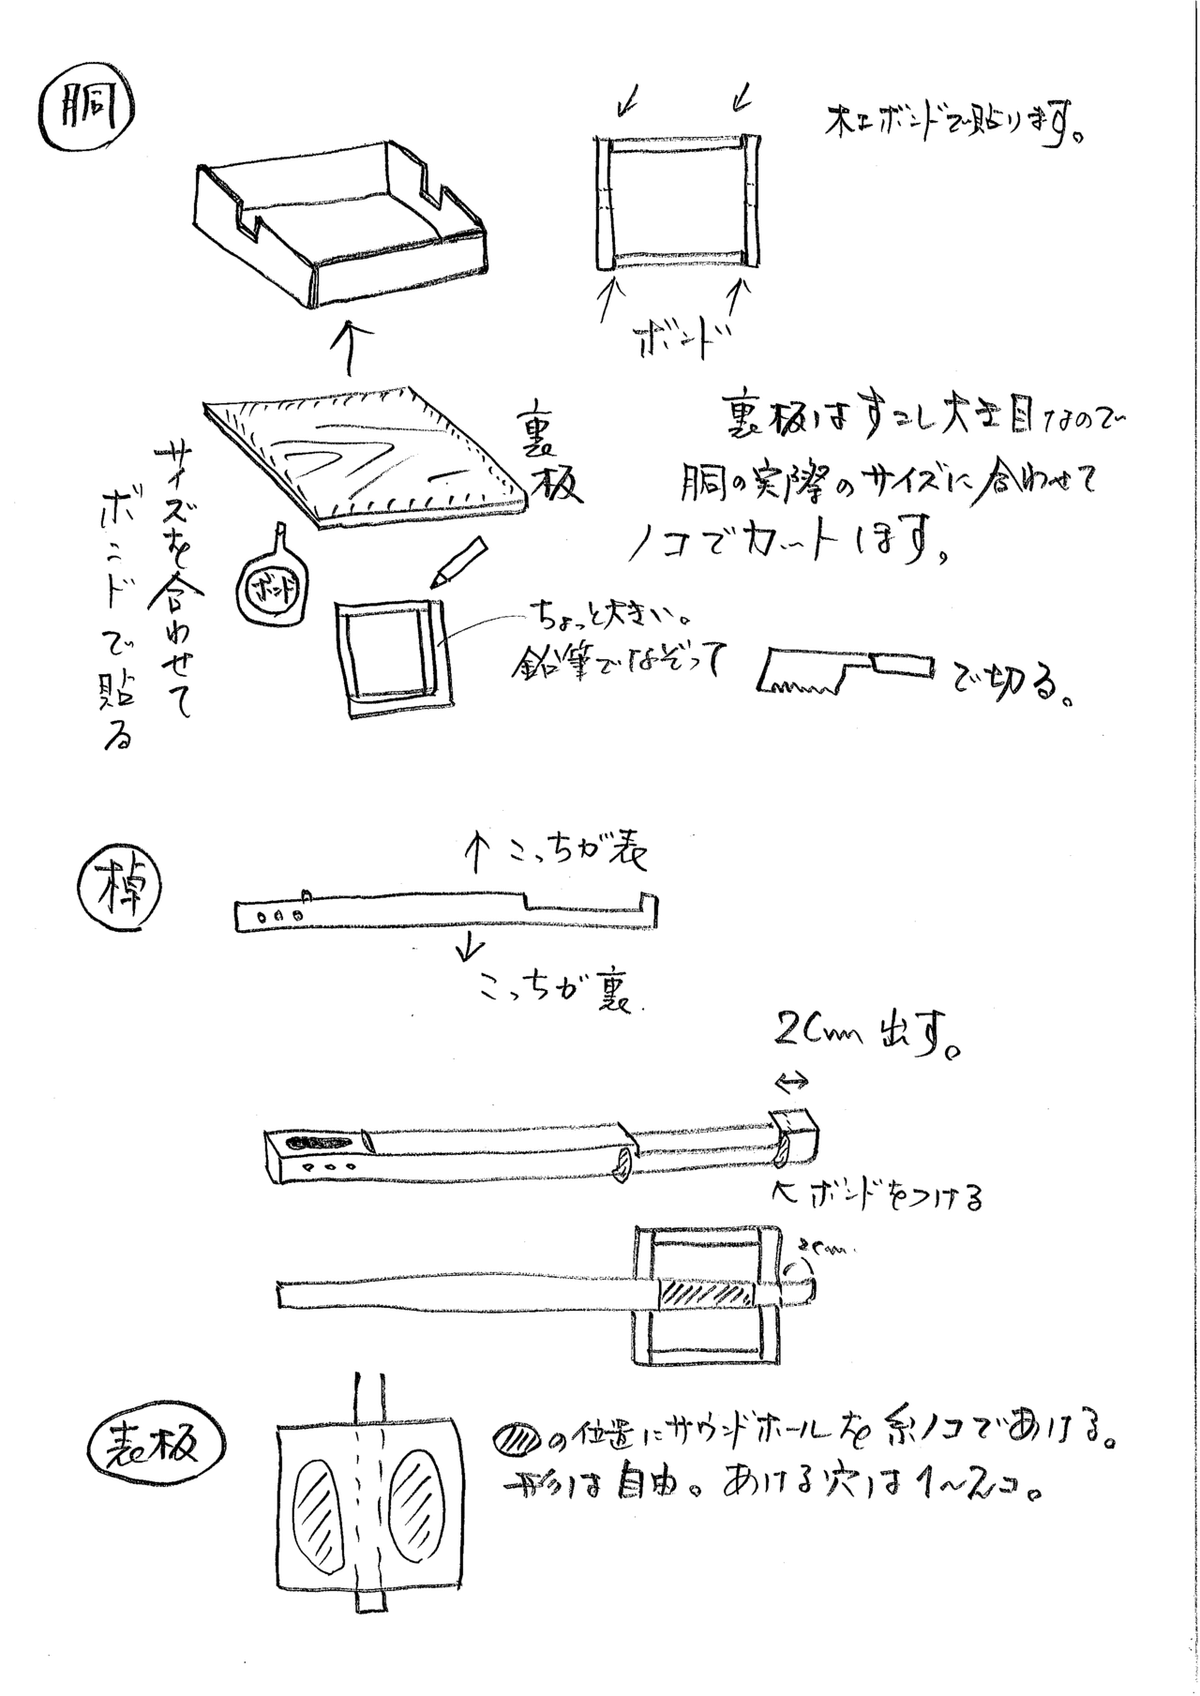 胴
木工ボンドで貼ります。
ボンド
裏板
裏板はすこし大き目なので
胴の実際のサイズに合わせて
ノコでカットします。
サイズを合わせて
ボンドで貼る
ボンド
ちょっと大きい。
鉛筆でなぞって
で切る。
棹
↑こっちが表
↓こっちが裏
2cm 出す。
ボンドをつける
2cm.
表板
の位置にサウンドホールを糸ノコであける。
形は自由。あける穴は1~2コ。